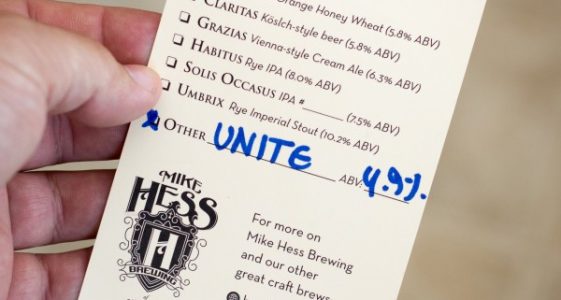 Orange Honey Wheat (5.8% ABV)
CLARITAS Köslch-style beer (5.8% ABV)
GRAZIAS Vienna-style Cream Ale (6.3% ABV)
HABITUS Rye IPA (8.0% ABV)
SOLIS OCCASUS IPA #______ (7.5% ABV)
UMBRIX Rye Imperial Stout (10.2% ABV)
OTHER UNITE ABV: 4.9%
MIKE
HESS
H
BREWING
For more on
Mike Hess Brewing
and our other
great craft brews